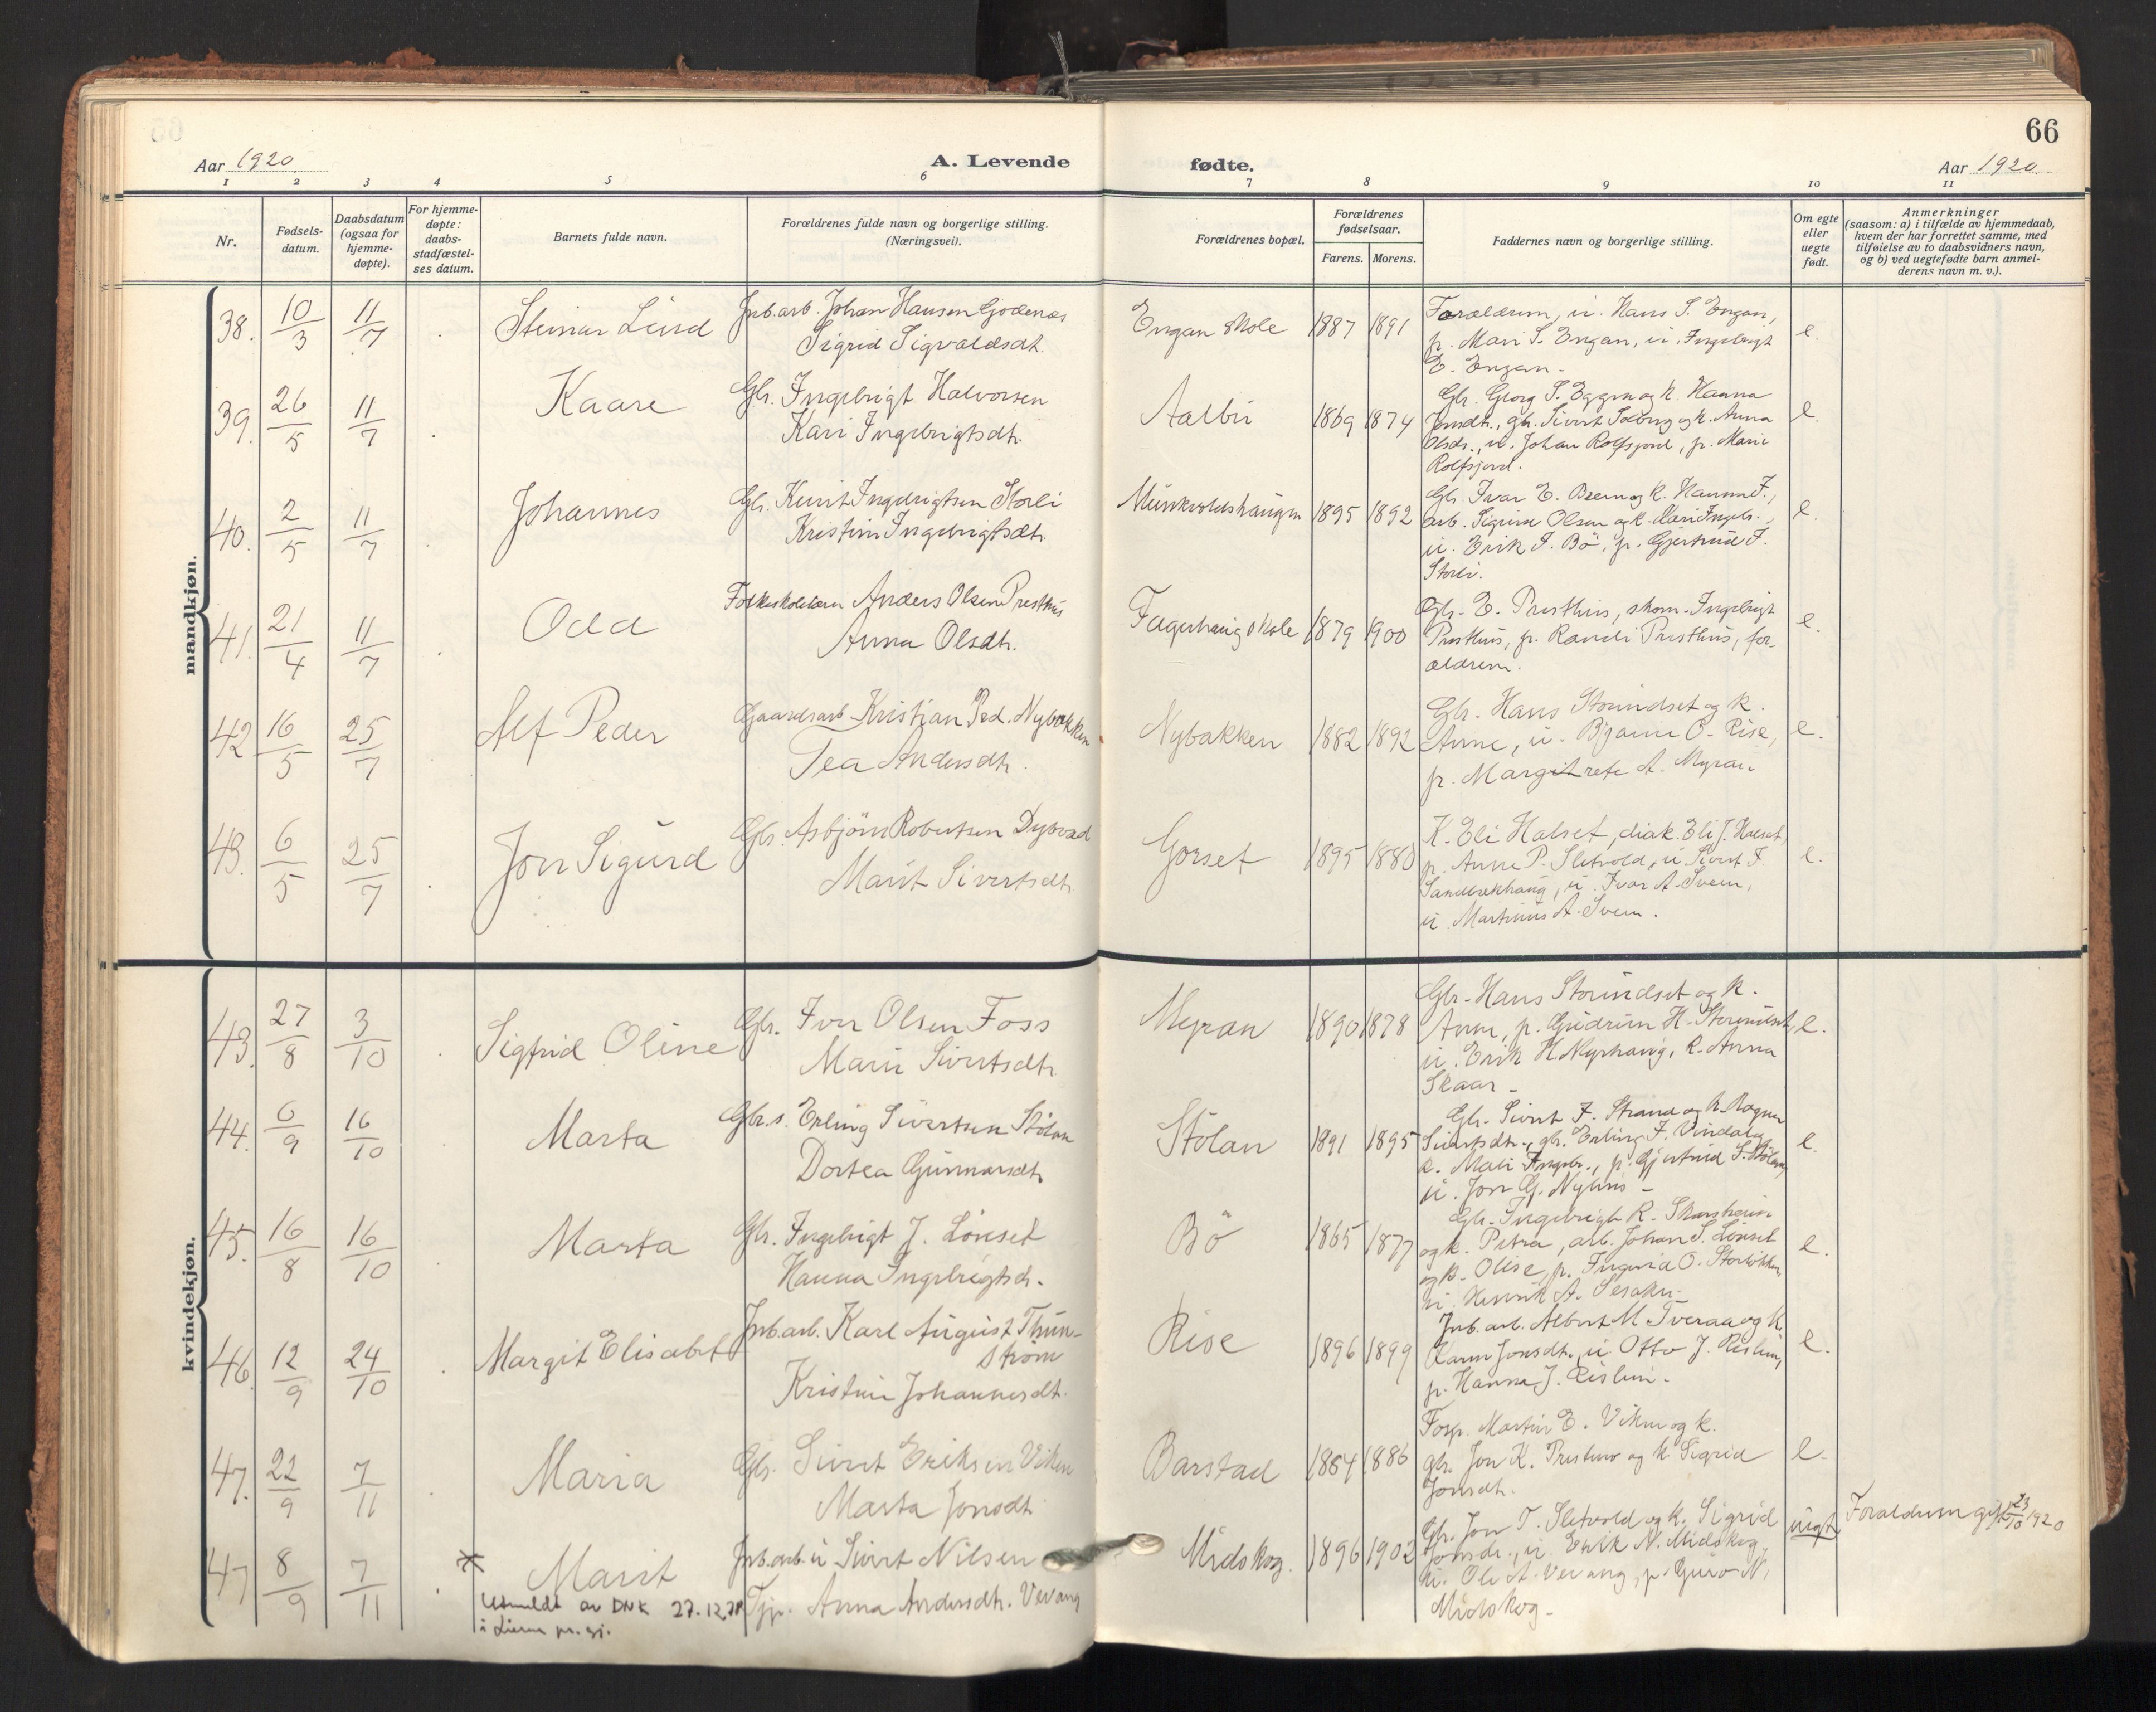 66
Aar 1920
A. Levende
fødte.
Aar 1920
1 2 3 4 5 6 7 8 9 10 11
Nr.
Fødsels-
datum.
Daabsdatum
(ogsaa for
hjemme-
døpte).
For hjemme-
døpte:
daabs-
stadfæstel-
ses datum.
Barnets fulde navn.
Forældrenes fulde navn og borgerlige stilling.
(Næringsvei).
Forældrenes bopæl.
Forældrenes
fødselsaar.
Farens. Morens.
Faddernes navn og borgerlige stilling.
Om egte
eller
uegte
født.
Anmerkninger
(saasom: a) i tilfælde av hjemmedaab,
hvem der har forrettet samme, med
tilføielse av to daabsvidners navn,
og b) ved uegtefødte barn anmel-
derens navn m. v.).
mandkjøn.
38. 10/3 11/7 Steinar Leird
Jnb.arb. Johan Hansen Godenæs
Sigrid Sigvaldsdt.
Engan skole 1887 1891
Forældrene, u. Hans S. Engan,
p. Mari S. Engan, u. Ingebrigt
E. Engan. e.
39. 26/5 11/7 Kaare
Gbr. Ingebrigt Halvorsen
Kari Ingebrigtsdt.
Aalbu 1869 1874
Gbr. Georg S. Eggen og k. Hanna
Jonsdt., gbr. Sivert Solberg og k. Anna
Olsdt., u. Johan Rolfsjord, p. Marie
Rolfsjord. e.
40. 2/5 11/7 Johannes
Gbr. Kunit Ingebrigtsen Storli
Kristine Ingebrigtsdt.
Munkvoldshaugen 1895 1892
Gbr. Ivar E. Brem og k. Hanna I.,
arb. Sigurd Olsen og k. Mari Ingebr.,
u. Erik I. Bö, p. Gjertrud I.
Storli. e.
41. 21/4 11/7 Odd
Folkeskolelærer Anders Olsen Presthus
Anna Olsdt.
Fagerhaug skole 1879 1900
Gbr. E. Presthus, skom. Ingebrigt
Presthus, p. Randi Presthus, for-
ældrene. e.
42 16/5 25/7 Alf Peder
Gaardsarb. Kristian Ped. Nybakken
Tea Andersdt.
Nybakken 1882 1892
Gbr. Hans Storindset og k.
Anne, u. Bjarne O. Rise,
p. Margitrete A. Myran e.
43. 6/5 25/7 Jon Sigurd
Gbr. Asbjörn Robertsen Dysvad
Marit Sivertsdt.
Gorset 1895 1880
K. Eli Halset, diak. Eli J. Halset,
p. Anne P. Sletvold, u. Sivert I.
Sandbækhaug, u. Ivar A. Sveen,
u. Martinus A. Sveen. e.
kvindekjøn.
43. 27/8 3/10 Sigfrid Oline
Gbr. Iver Olsen Foss
Mari Sivertsdt.
Myran 1890 1878
Gbr. Hans Storindset og k.
Anne, p. Gudrun H. Storindset,
u. Erik H. Nyhaug, k. Anna
Skaar - e.
44. 6/9 16/10 Marta
Gbr.s. Erling Sivertsen Stölan
Dortea Gunnarsdt.
Stölan 1891 1895
Gbr. Sivert I. Strand og k. Ragna
Sivertsdt., gbr. Erling I. Vindal og
k. Mali Ingebr., p. Gjertrud S. Stölan,
u. Jon G. Nyhus - e.
45. 16/8 16/10 Marta
Gbr. Ingebrigt J. Lönset
Hanna Ingebrigtsd.
Bö 1865 1877
Gbr. Ingebrigt R. Skarsheim
og k. Petra, arb. Johan S. Lönset
og k. Olise, p. Ingrid O. Storlökken,
u. Henrik A. e.
46. 12/9 24/10 Margit Elisabet
Jnb.arb. Karl August Thun-
strøm
Kristine Johannesdt.
Rise 1896 1899
Jnb. arb. Albert M. Tveraa og k.
Karen Jonsdt., u. Otto J. Rislien,
p. Hanna J. Rislien. e.
47. 22/9 7/11 Maria
Gbr. Sivert Eriksen Viken
Marta Jonsdt.
Barstad 1884 1886
Forp. Martin E. Viken og k.
gbr. Jon K. Prestmo og k. Sigrid
Jonsdt. e.
47 8/9 7/11 * Marit
Utmeldt av DNK 27.12.78
i Lierne pr. gj.
Jnb.arb. u. Sivert Nilsen
Tjp. Anna Andersdt. Vevang
Midskog. 1896 1902
Gbr. Jon T. Sletvold og k. Sigrid
Jonsdt., u. Erik N. Midskog,
u. Ole A. Vevang, p. Guro N.
Midskog - uegte Forældrene gift 23/10 1920